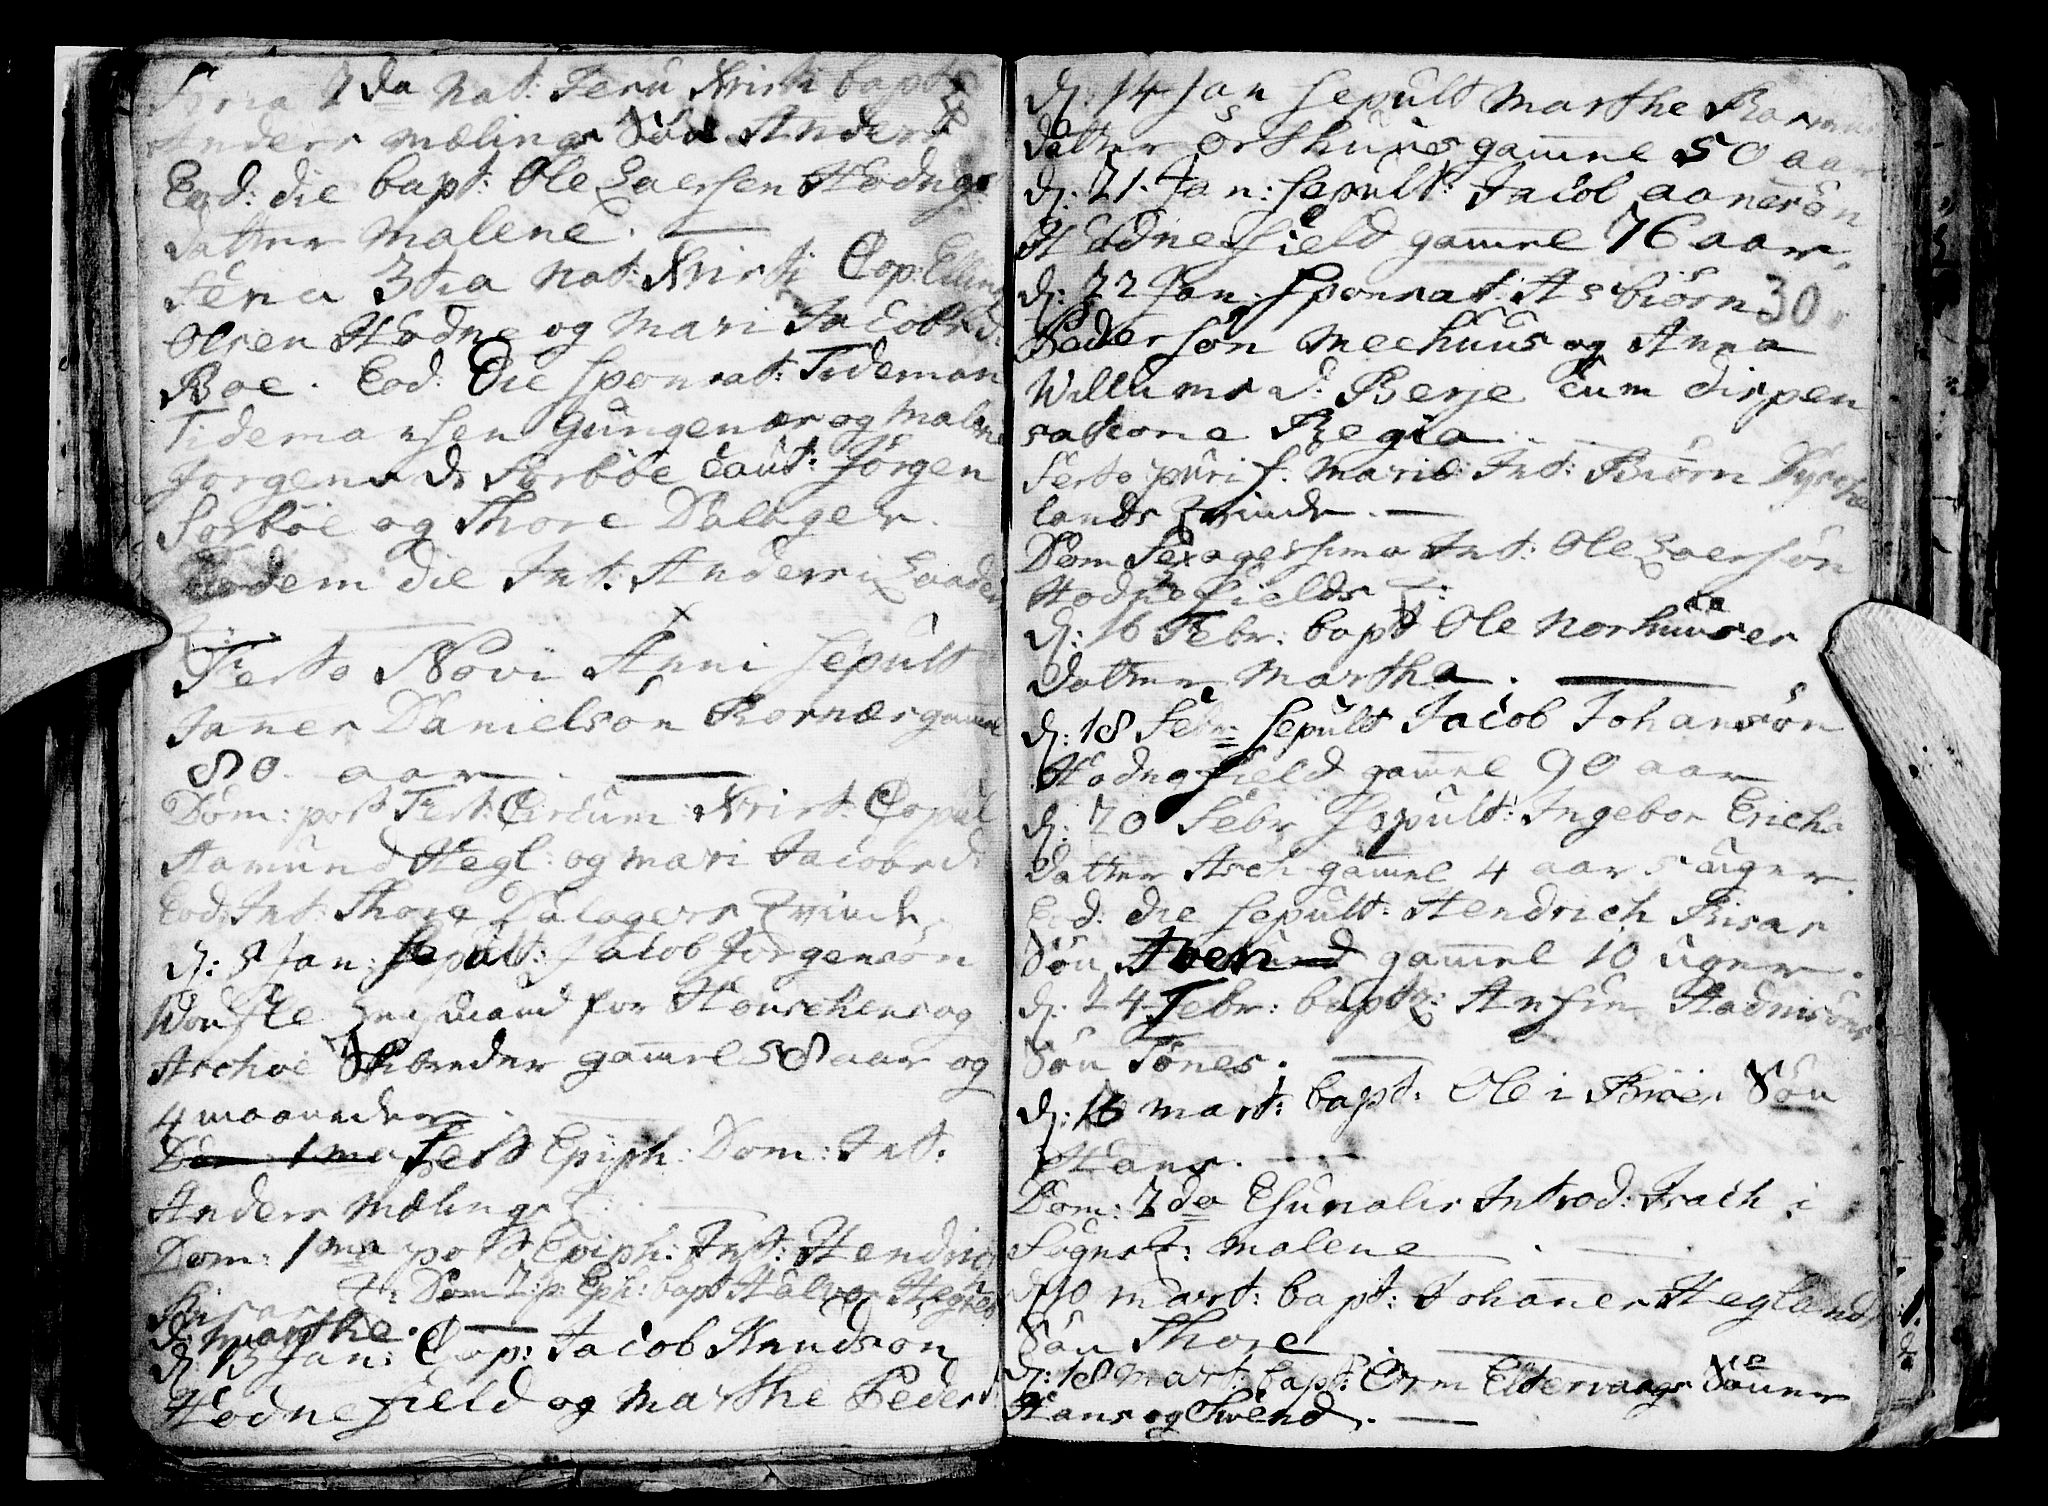 Feria 2da Nat: Jesu Xristi bapt:
Anders Mælings Søn Anders
Eod: die bapt: Ole Laersen Hodnef:
datter Malene.
Feria 3tia Nat: Xristi Cop: Elling
Olsen Hodne og Mari Jacobs d:
Boe. Eod: die sponsat: Tideman
Tidemansen Gungenær og Malene
Jørgens d: Sørbøe caut: Jørgen
Sørbøe og Thore Dalager.
Eodem die Int: Anders i
Festo Novi Anni sepult
Janes Danielsøn gamel
80 aar.
Dom: post Fest: Circum: Xristi: Copul
Aamund Hegl: og Mari Jacobs d:
Eod: Int: Thore Dalagers Qvinde.
d: 5 Jan: sepult: Jacob Jørgensøn
for og
Aschøe Skibreder gamel 58 aar og
4 maaneder.
Fest Epiph: Dom: Int:
Anders Mælings Q:
Dom: 1ma post Epiph: Int: Hendrich
Risas Q: Dom 2 p: Eph: bapt Halvor
d: Marthe.
d: 13 Jan: Cop: Jacob Knudsøn
Hodnefield og Marthe Peders
d: 14 Jan sepult Marthe Rasmus
datter Ørshuus gamel 50 aar
d: 21. Jan: sepult: Jacob Aanesøn
Hodnefield gamel 76 aar.
d: 22 Jan: sponsat: Asbiørn
30
Pedersøn Meehuus og Anna
Willums d: Berje cum dispen
satione Regia.
Festo purif. Mariæ Int: Biørn
lands Qvinde.
Dom Sexagesima Int: Ole Laersøn
Hodnefields Q:
d: 16 Febr: bapt Ole Norhuuses
datter Martha.
d: 18 Febr: sepult Jacob Johansøn
Hodnefield gamel 90 aar
d: 20 Febr sepult: Ingebor Erichs
datter Asch gamel 4 aar 5 uger.
Eod: die sepult: Hendrich Risas
Søn Aven gamel 10 uger.
d: 24 Febr: bapt: Anfin
Søn Tønes.
d: 16 Mart: bapt: Ole i Søn
Hans.
Dom: 2da Esunalis Introd: Isach i
Q: Malene
d: 10 Mart: bapt: Johanes Heglands
Søn Thore
d: 18 Mart: bapt: Orm Eltervaags Søner
Hans og Svend.